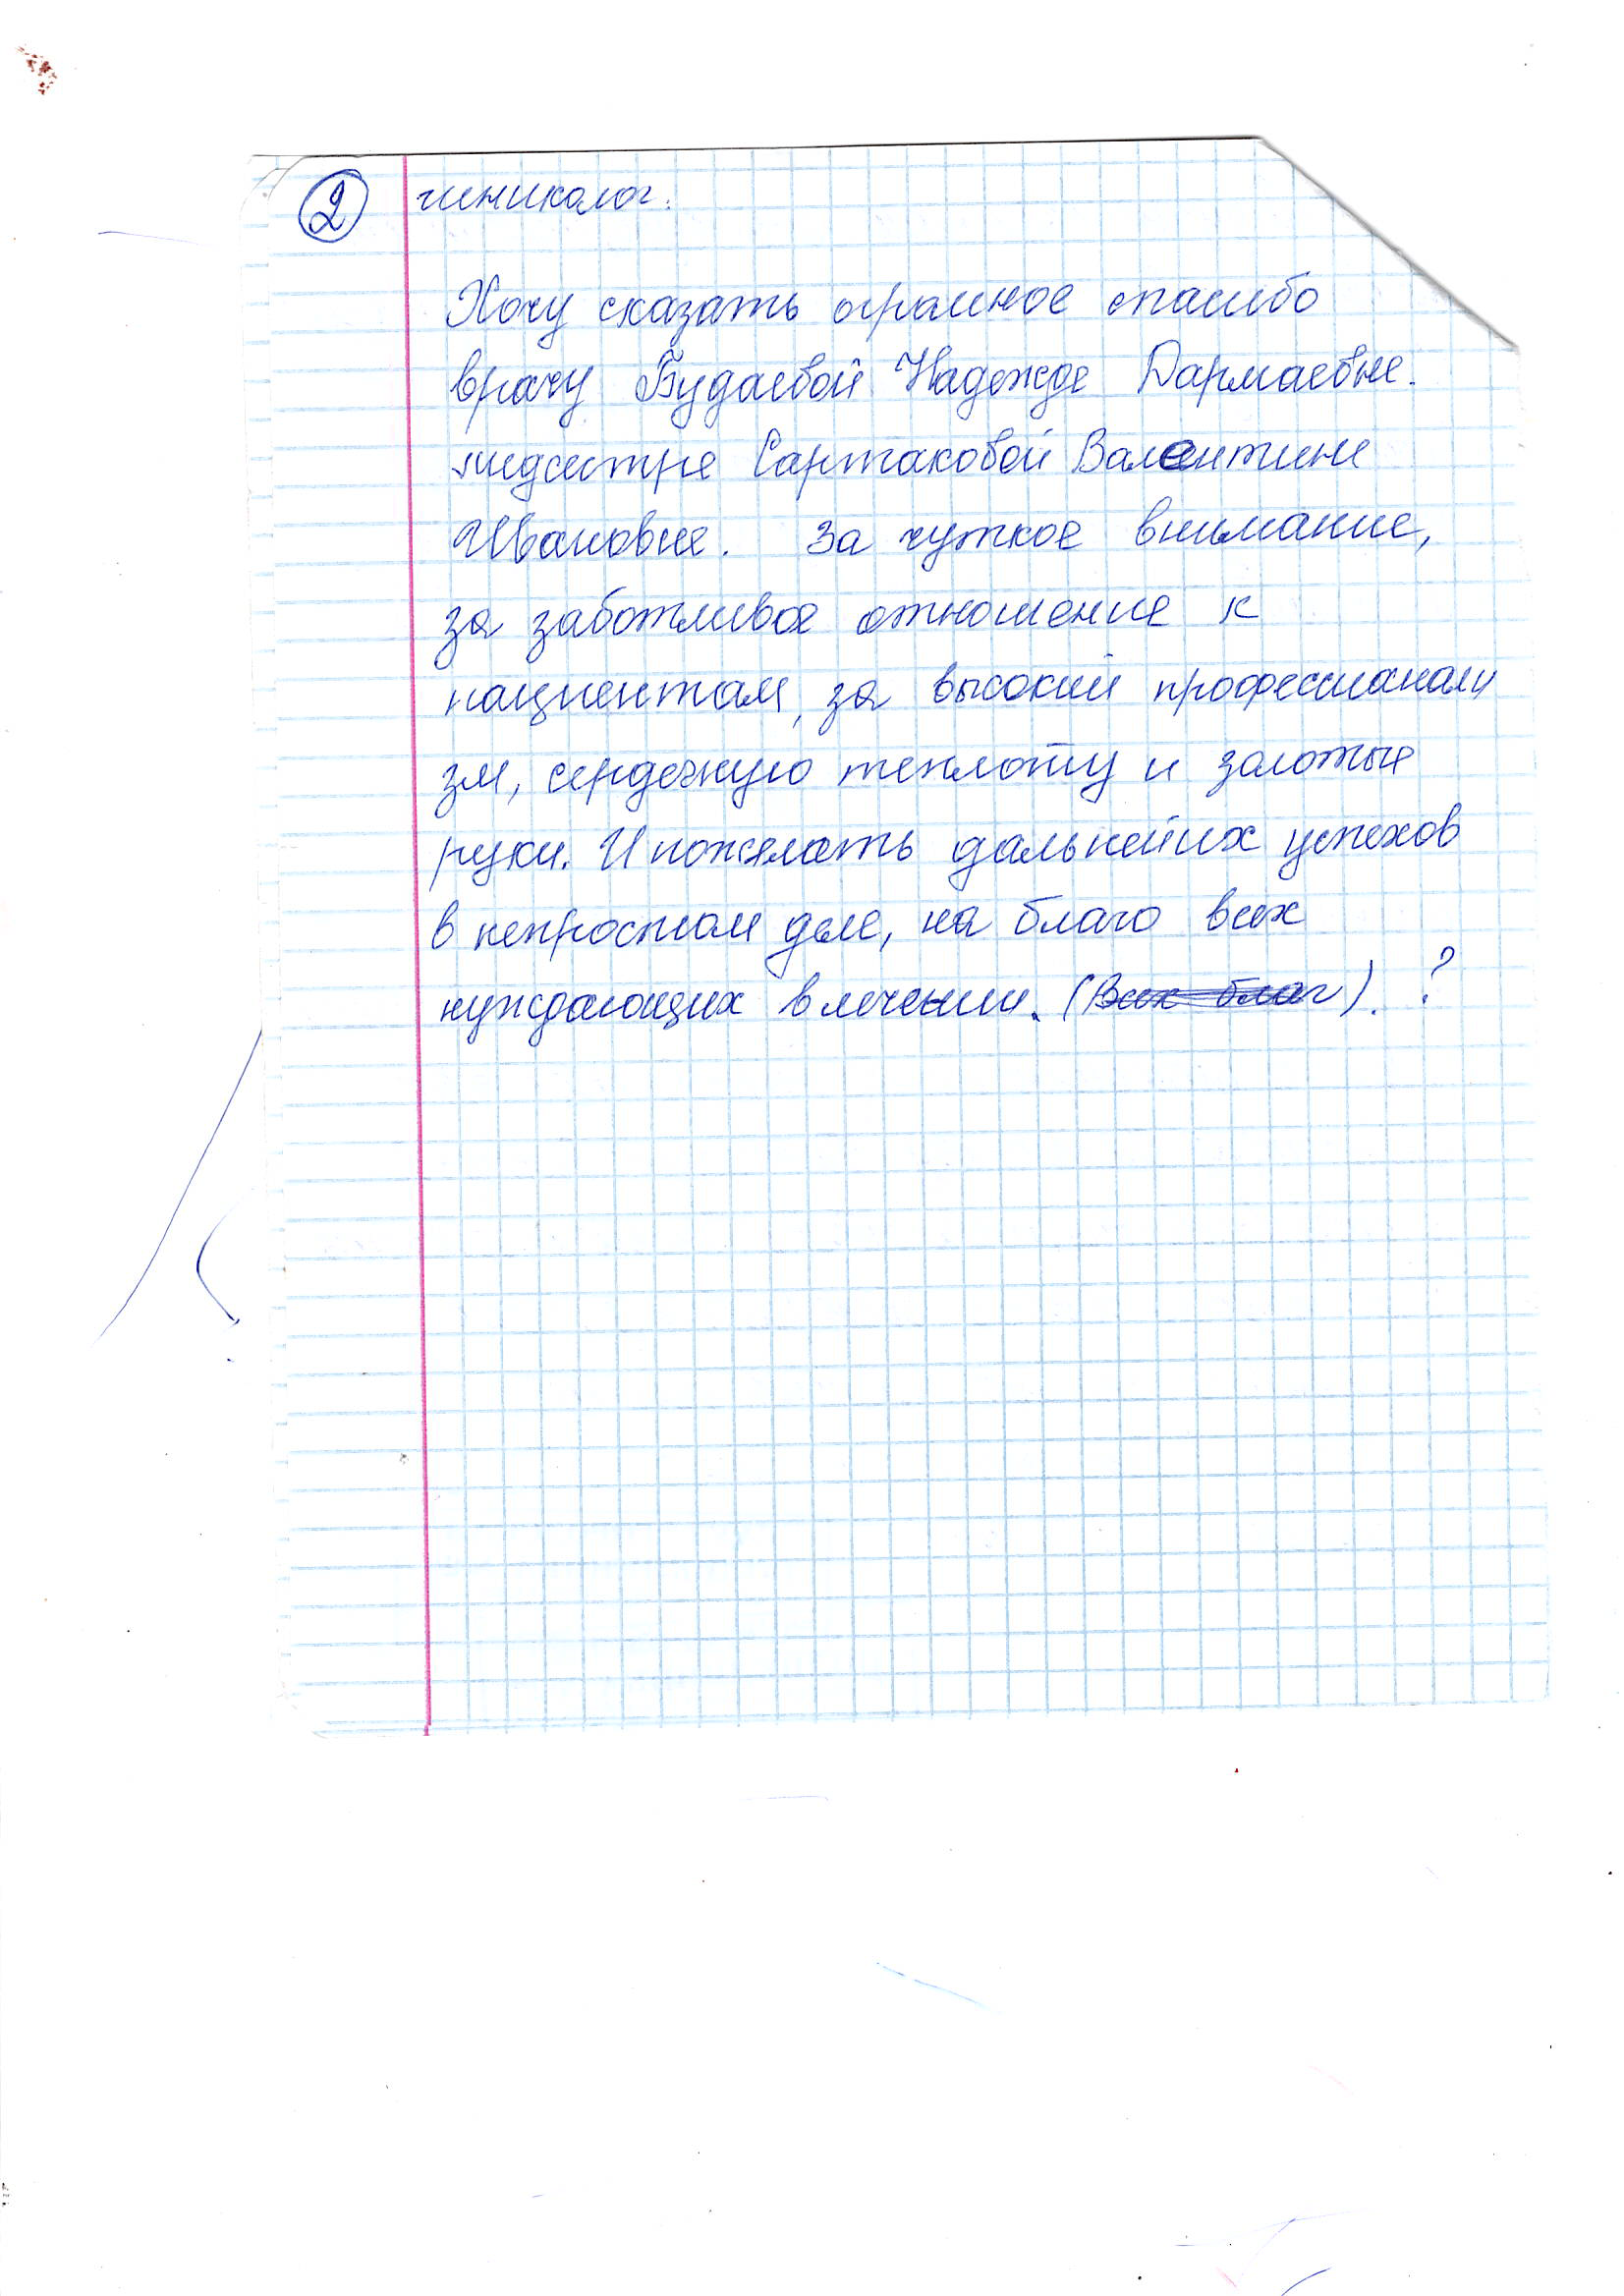 2 гиниколог.
Хочу сказать огромное спасибо
врачу Будаевой Надежде Дармаевне.
мидсестре Сартаковой Валентине
Ивановне. За чуткое внимание,
за заботливое отношение к
пациентам, за высокий професионали
зм, сердечную теплоту и золотые
руки. И пожелать дальнейих успехов
в непростом деле, на благо всех
нуждающихх в лечении. (Всех благ). ?